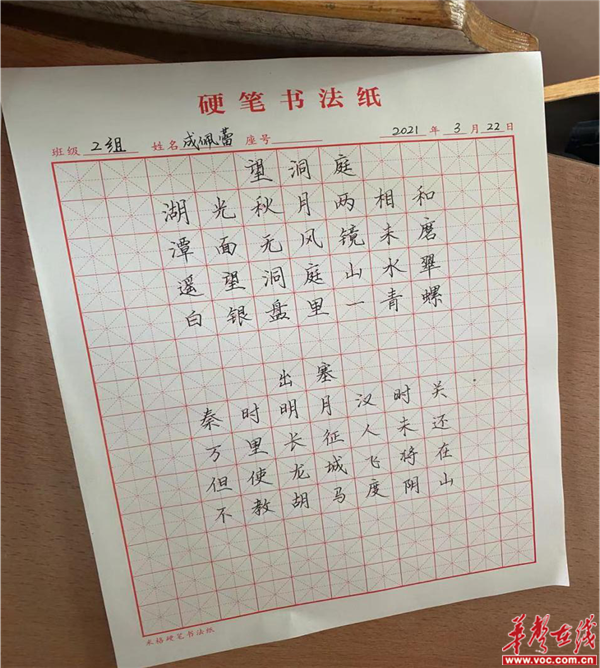 硬笔书法纸
班级 2组 姓名 成佩蕾 座号 2021年3月22日
望洞庭
湖光秋月两相和
潭面无风镜未磨
遥望洞庭山水翠
白银盘里一青螺
出塞
秦时明月汉时关
万里长征人未还
但使龙城飞将在
不教胡马度阴山
硬笔书法纸
华声在线
www.voc.com.cn